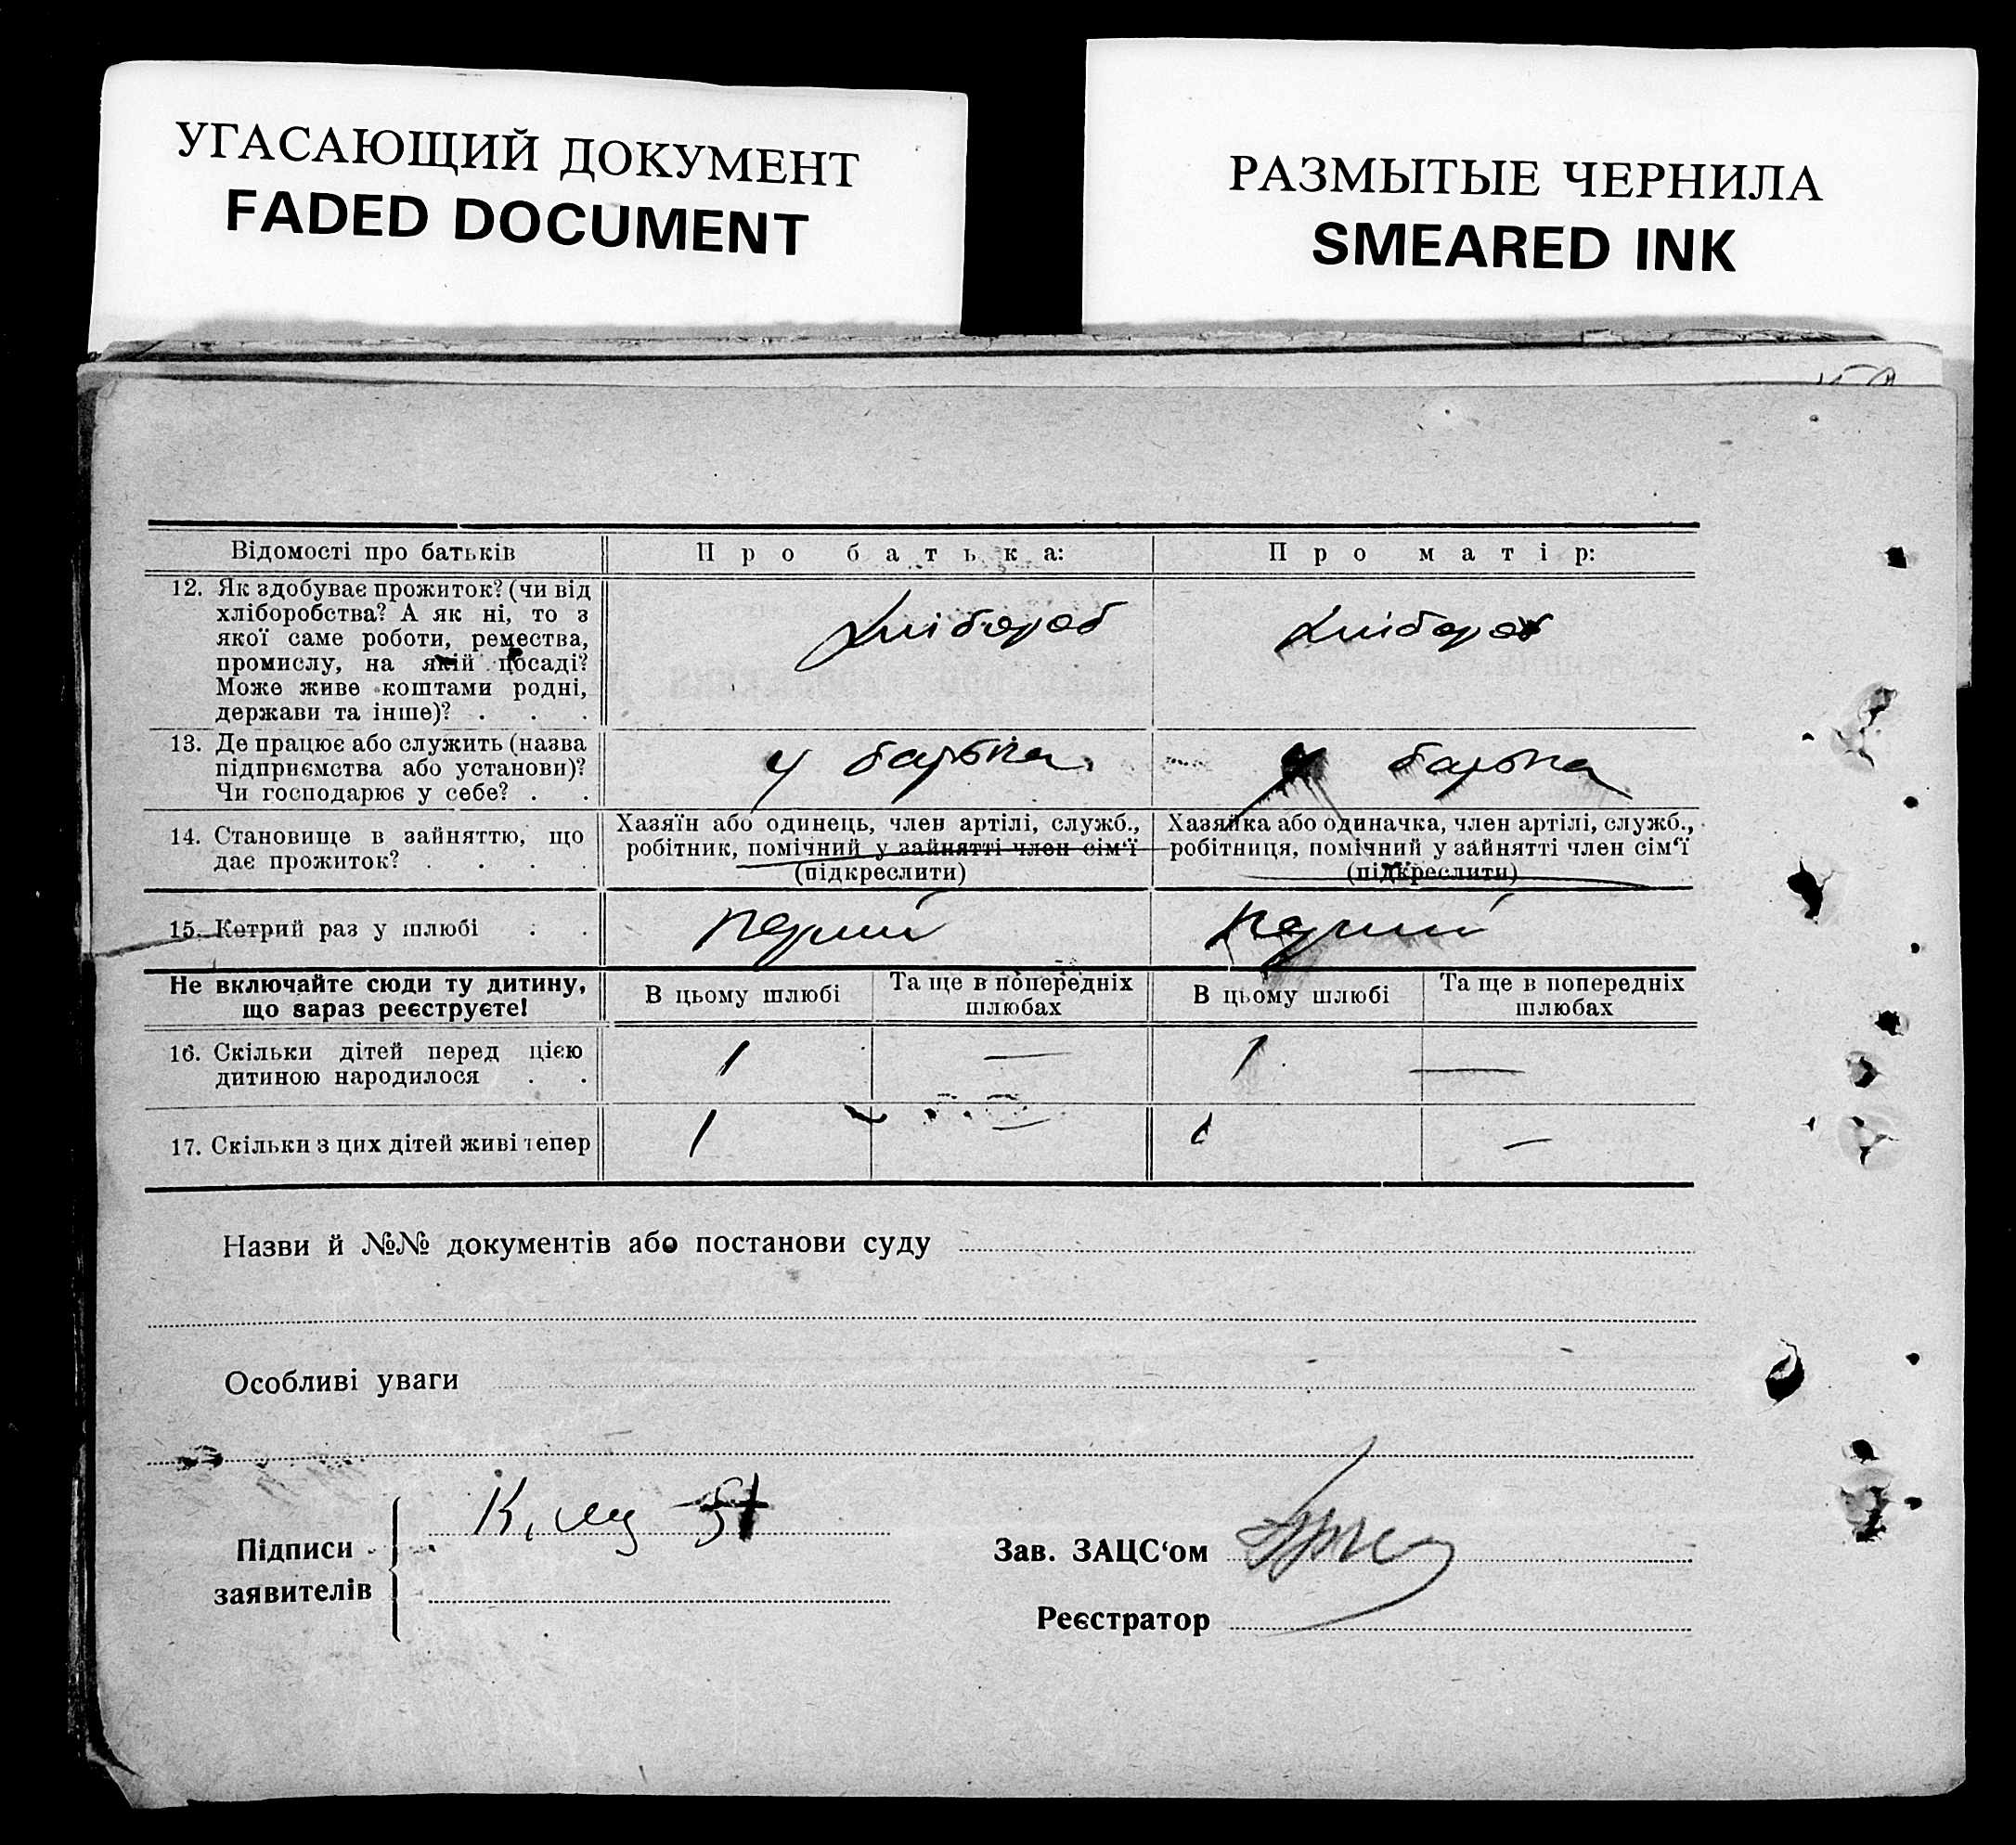 УГАСАЮЩИЙ ДОКУМЕНТ
FADED DOCUMENT
РАЗМЫТЫЕ ЧЕРНИЛА
SMEARED INK
Відомості про батьків
Про батька:
Про матір:
12. Як здобуває прожиток? (чи від
хліборобства? А як ні, то з
якої саме роботи, ремества,
промислу, на якій посаді?
Може живе коштами родні,
держави та інше)? . . .
хлібороб
хлібороб
13. Де працює або служить (назва
підприємства або установи)?
Чи господарює у себе? . .
у батька
у батька
14. Становище в зайняттю, що
дає прожиток? . . . .
Хазяїн або одинець, член артілі, служб.,
робітник, помічний у зайнятті член сім‘ї
(підкреслити)
Хазяйка або одиначка, член артілі, служб.,
робітниця, помічний у зайнятті член сім‘ї
(підкреслити)
15. Котрий раз у шлюбі . .
перший
перший
Не включайте сюди ту дитину,
що зараз реєструєте!
В цьому шлюбі
Та ще в попередніх
шлюбах
В цьому шлюбі
Та ще в попередніх
шлюбах
16. Скільки дітей перед цією
дитиною народилося . .
1
—
1
—
17. Скільки з цих дітей живі тепер
1
—
1
—
Назви й №№ документів або постанови суду
Особливі уваги
Підписи
заявителів
Зав. ЗАЦС‘ом
Реєстратор